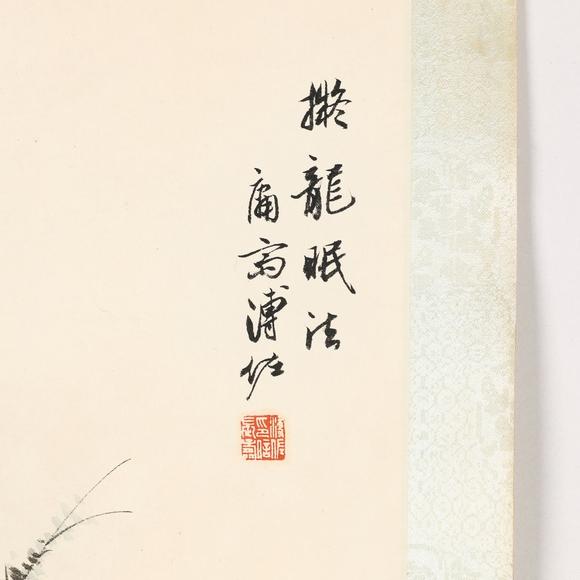 擬龍眠法
庸齋溥佐